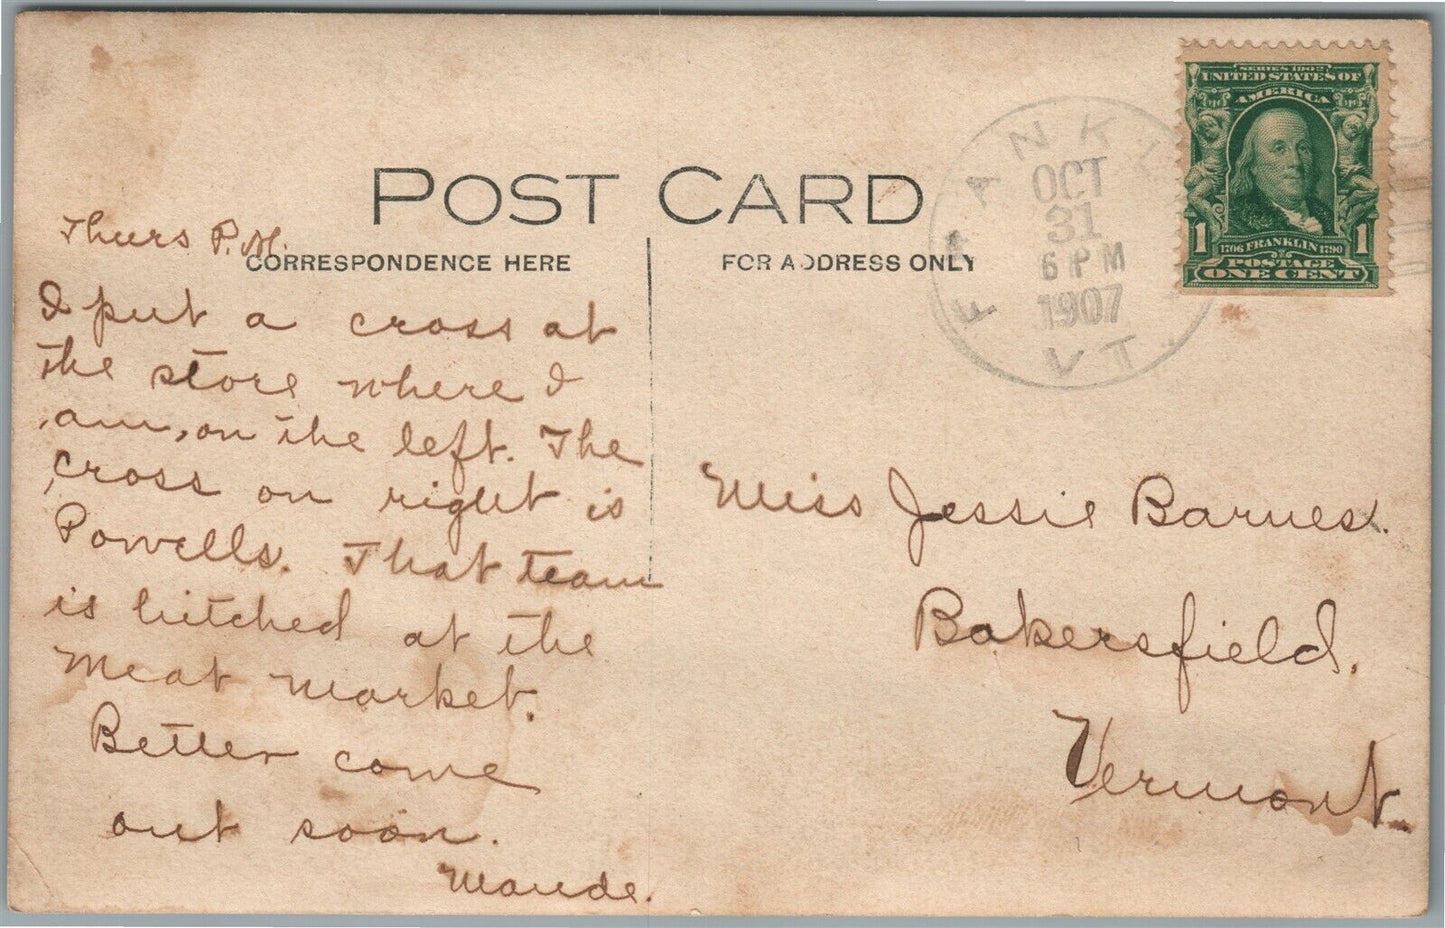 POST CARD
CORRESPONDENCE HERE
FOR ADDRESS ONLY
Thurs P.M.
I put a cross at
the store where I
am, on the left. The
cross on right is
Powells. That team
is hitched at the
meat market.
Better come
out soon.
Maude.
FRANKL
OCT
31
6 PM
1907
VT.
SERIES 1902
UNITED STATES OF
AMERICA
1706 FRANKLIN 1790
1 1
POSTAGE
ONE CENT
Miss Jessie Barnes.
Bakersfield.
Vermont.